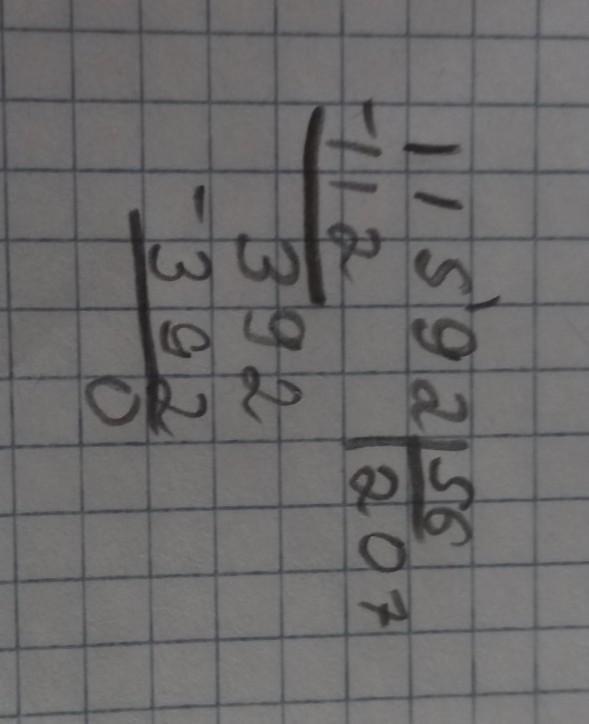 115'92 56
-112 207
392
-392
0